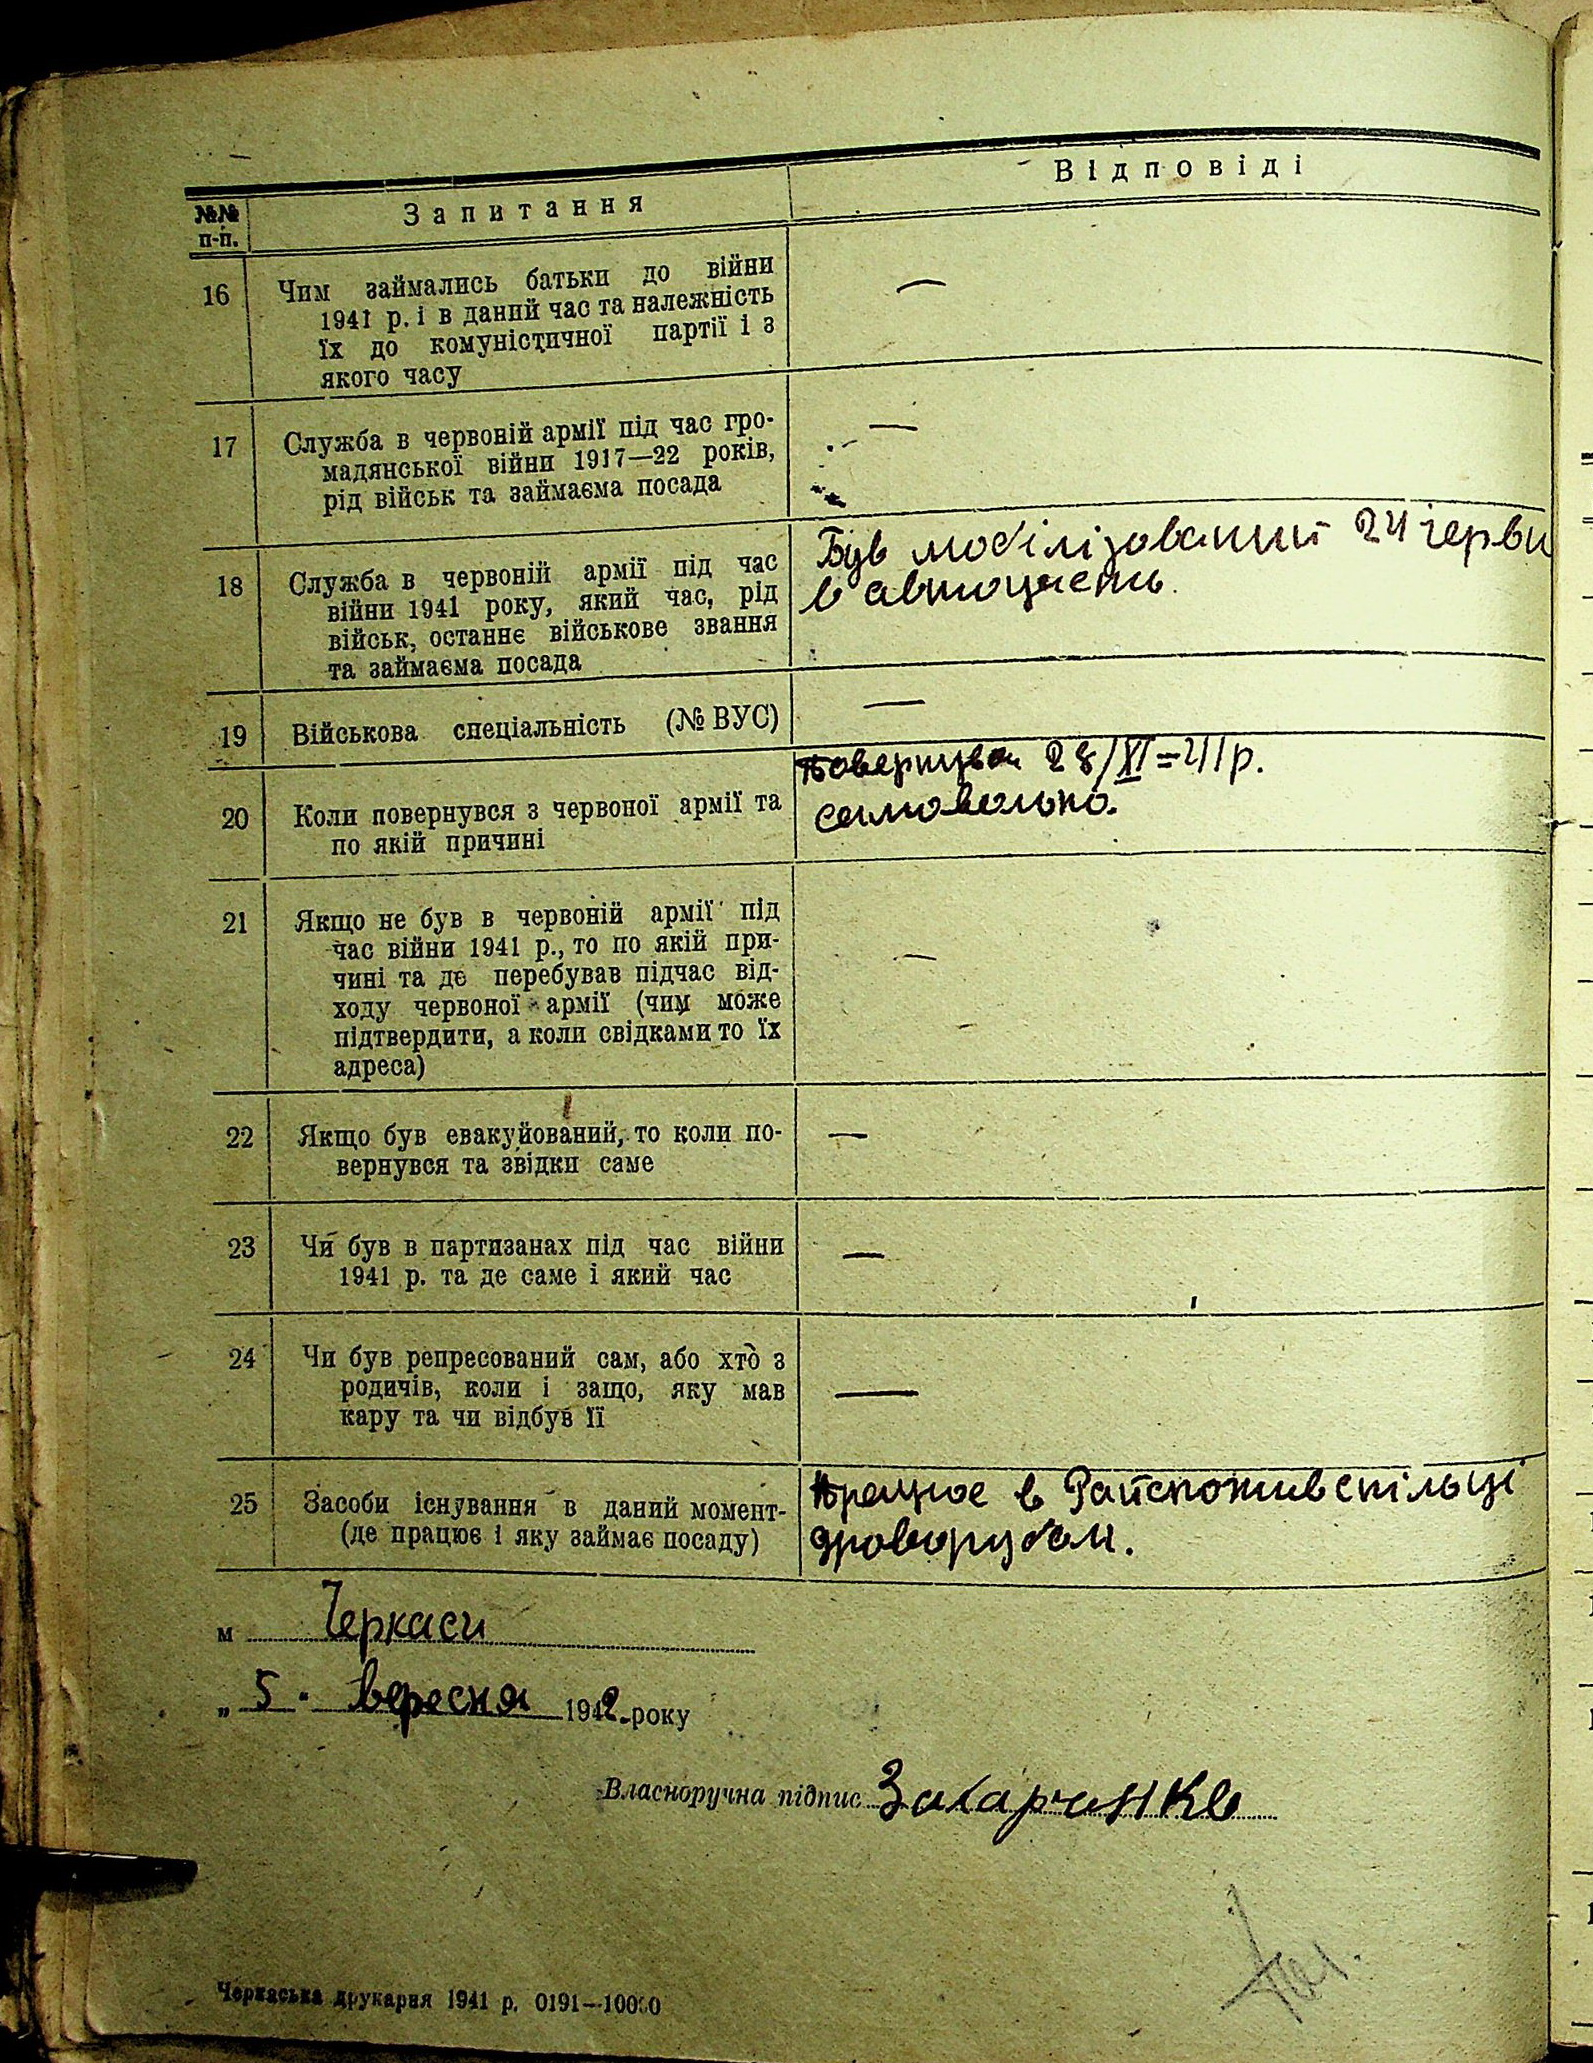 №№ п-п.
Запитання
Відповіді
16
Чим займались батьки до війни
1941 р. і в даний час та належність
їх до комуністичної партії і з
якого часу
—
17
Служба в червоній армії під час гро-
мадянської війни 1917—22 років,
рід військ та займаєма посада
—
18
Служба в червоній армії під час
війни 1941 року, який час, рід
військ, останнє військове звання
та займаєма посада
Був мобілізований 24 червн
в авточасть.
19
Військова спеціальність (№ ВУС)
—
20
Коли повернувся з червоної армії та
по якій причині
повернувся 28/XI=41 р.
самовольно.
21
Якщо не був в червоній армії під
час війни 1941 р., то по якій при-
чині та де перебував підчас від-
ходу червоної армії (чим може
підтвердити, а коли свідками то їх
адреса)
—
22
Якщо був евакуйований, то коли по-
вернувся та звідки саме
—
23
Чи був в партизанах під час війни
1941 р. та де саме і який час
—
24
Чи був репресований сам, або хто з
родичів, коли і защо, яку мав
кару та чи відбув її
—
25
Засоби існування в даний момент-
(де працює і яку займає посаду)
Працює в Райспоживспільці
дроворубом.
м Черкаси
„ 5 " вересня 1942 року
Власноручна підпис Захарченко
Черкаська друкарня 1941 р. 0191—10000